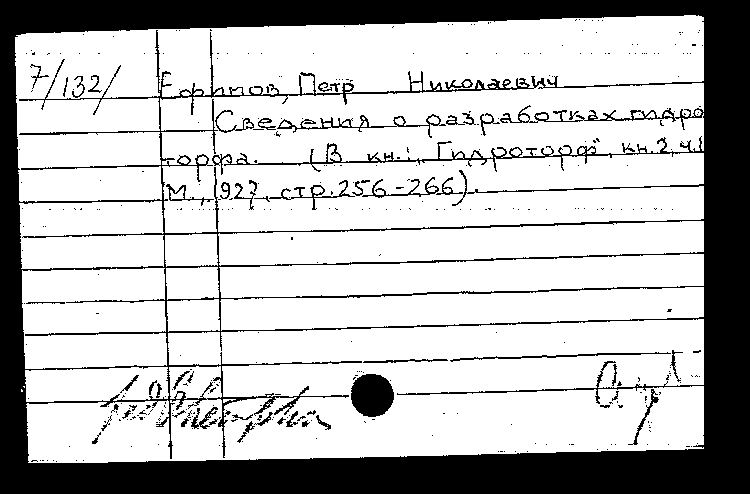 7/132/ Ефимов, Петр Николаевич
Сведения о разработках гидро
торфа. (В кн.: „Гидроторф", кн.2, ч.1
М., 1927, стр.256-266).